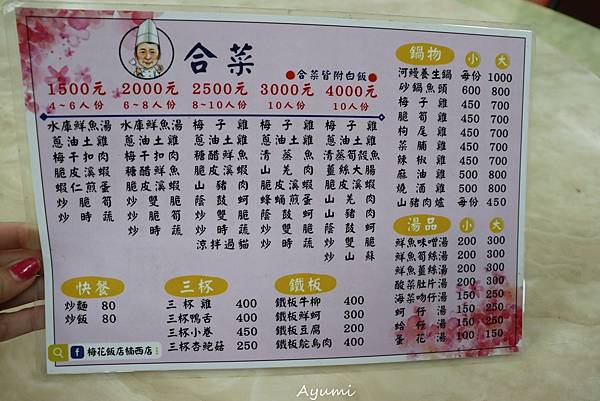 合菜
●合菜皆附白飯●
1500元
4~6人份
水庫鮮魚湯
蔥油土雞
梅干扣肉
脆皮溪蝦
蝦仁煎蛋
炒脆筍
炒時蔬
2000元
6~8人份
水庫鮮魚湯
蔥油土雞
梅干扣肉
糖醋鮮魚
脆皮溪蝦
炒雙脆
炒脆筍
炒時蔬
2500元
8~10人份
梅子雞
蔥油土雞
糖醋鮮魚
脆皮溪蝦
山豬肉
蔭鼓蚵
炒雙脆
炒時蔬
涼拌過貓
3000元
10人份
梅子雞
蔥油土雞
清蒸魚
山羌肉
脆皮溪蝦
蜂蛹煎蛋
蔭鼓蚵
炒雙脆
炒時蔬
4000元
10人份
梅子雞
蔥油土雞
清蒸筍殼魚
薑絲大腸
脆皮溪蝦
山羌肉
山豬肉
蔭鼓蚵
炒雙脆
炒山蘇
鍋物 小 大
河鰻養生鍋 每份 1000
砂鍋魚頭 600 800
梅子雞 450 700
脆筍雞 450 700
枸尾雞 450 700
菜脯雞 450 700
辣椒雞 450 700
麻油雞 450 550
燒酒雞 450 550
山豬肉爐 每份 450
湯品 小 大
鮮魚味噌湯 200 300
鮮魚筍絲湯 200 300
鮮魚薑絲湯 200 300
酸菜肚片湯 200 300
海菜吻仔湯 150 250
蚵仔湯 150 250
蛤仔湯 150 250
蛋花湯 100 150
快餐
炒麵 80
炒飯 80
三杯
三杯雞 400
三杯鴨舌 400
三杯小卷 450
三杯杏鮑菇 250
鐵板
鐵板牛柳 400
鐵板鮮蚵 300
鐵板豆腐 200
鐵板鴕鳥肉 400
梅花飯店楠西店
Ayumi